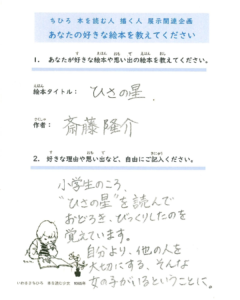 ちひろ 本を読む人 描く人 展示関連企画
あなたの好きな絵本を教えてください
1. あなたが好きな絵本や思い出の絵本を教えてください。
絵本タイトル： ひさの星
作者： 斎藤隆介
2. 好きな理由や思い出など、自由にご記入ください。
小学生のころ、
"ひさの星"を読んで
おどろき、びっくりしたのを
覚えています。
自分より、他の人を
大切にする、そんな
女の子がいるということに、